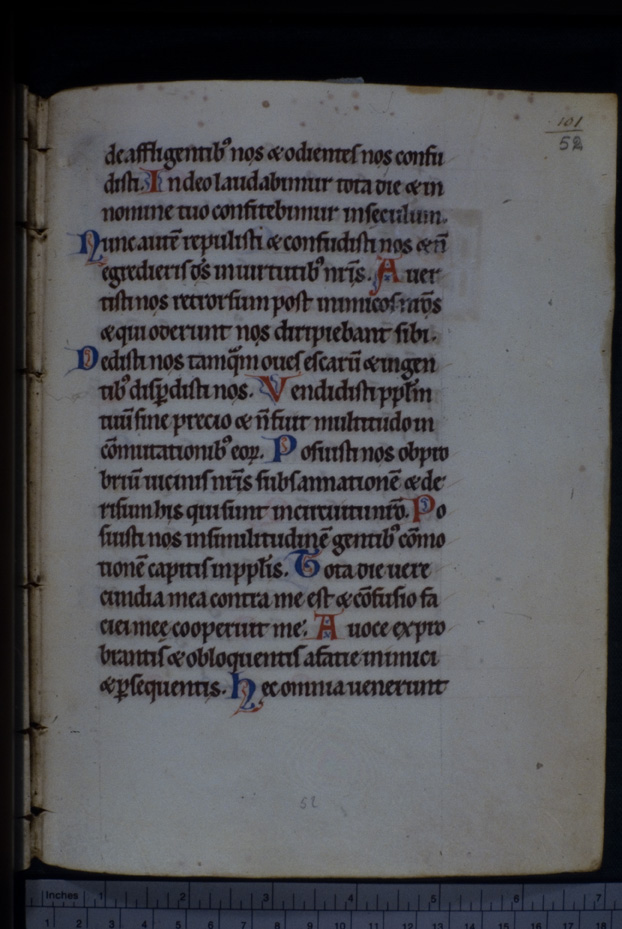 101
52
de affligentib⁹ nos & odientes nos confu
disti. In deo laudabimur tota die & in
nomine tuo confitebimur inseculum.
Nunc autē repulisti & confudisti nos & n̄
egredieris d̄s in uirtutib⁹ nr̄is. Auer
tisti nos retrorsum post inimicos nr̄os
& qui oderunt nos diripiebant sibi.
Dedisti nos tamq̄m oues escarū & ingen
tib⁹ disꝑdisti nos. Vendidisti ppl̄m
tuū sine precio & n̄ fuit multitudo in
cōmutationib⁹ eoꝝ. Posuisti nos obpro
briū uicinis nr̄is subsannationē & de
risum his qui sunt in circuitu nr̄o. Po
suisti nos insimilitudinē gentib⁹ cōmo
tionē capitis in ppl̄is. Tota die uere
cundia mea contra me est & cōfusio fa
ciei meę cooperuit me. A uoce expro
brantis & obloquentis a facie inimici
& ꝑsequentis. Hec omnia uenerunt
52
Inches 1 2 3 4 5 6 7
1 2 3 4 5 6 7 8 9 10 11 12 13 14 15 16 17 18